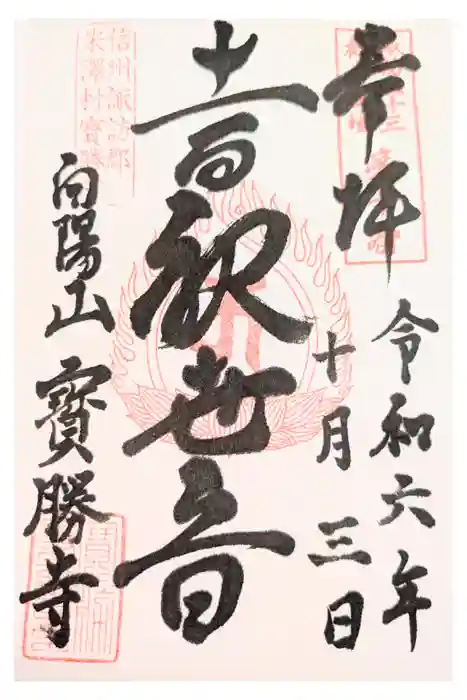 奉拝
令和六年
十月三日
十一面観世音
向陽山 寳勝寺
信州諏訪郡
米澤村寳勝